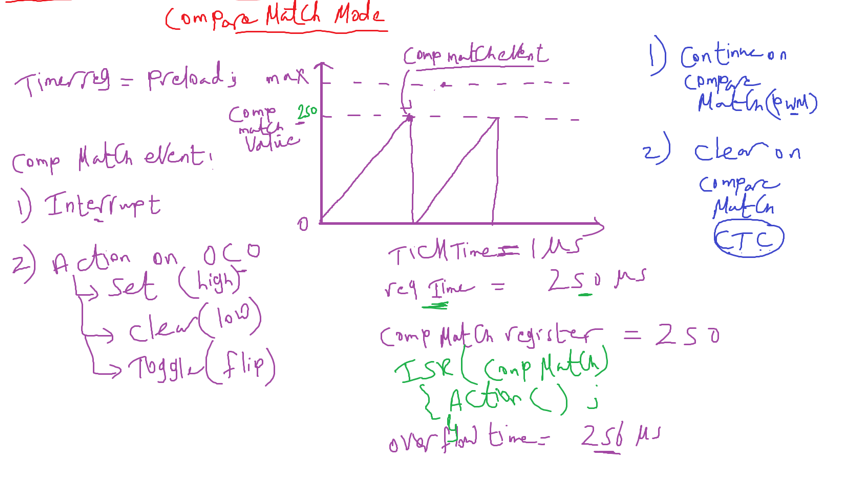 Compare Match Mode
Timerreg = Preload;
Comp Match event:
1) Interrupt
2) Action on OC0
Set (high)
Clear (low)
Toggle (flip)
Comp match event
max
Comp match value
250
0
TICM Time = 1 μs
req Time = 250 μs
Comp Match register = 250
ISR (Comp Match)
{ Action() ;
overflow time = 256 μs
1) Continue on
Compare
Match (PWM)
2) Clear on
Compare
Match
CTC